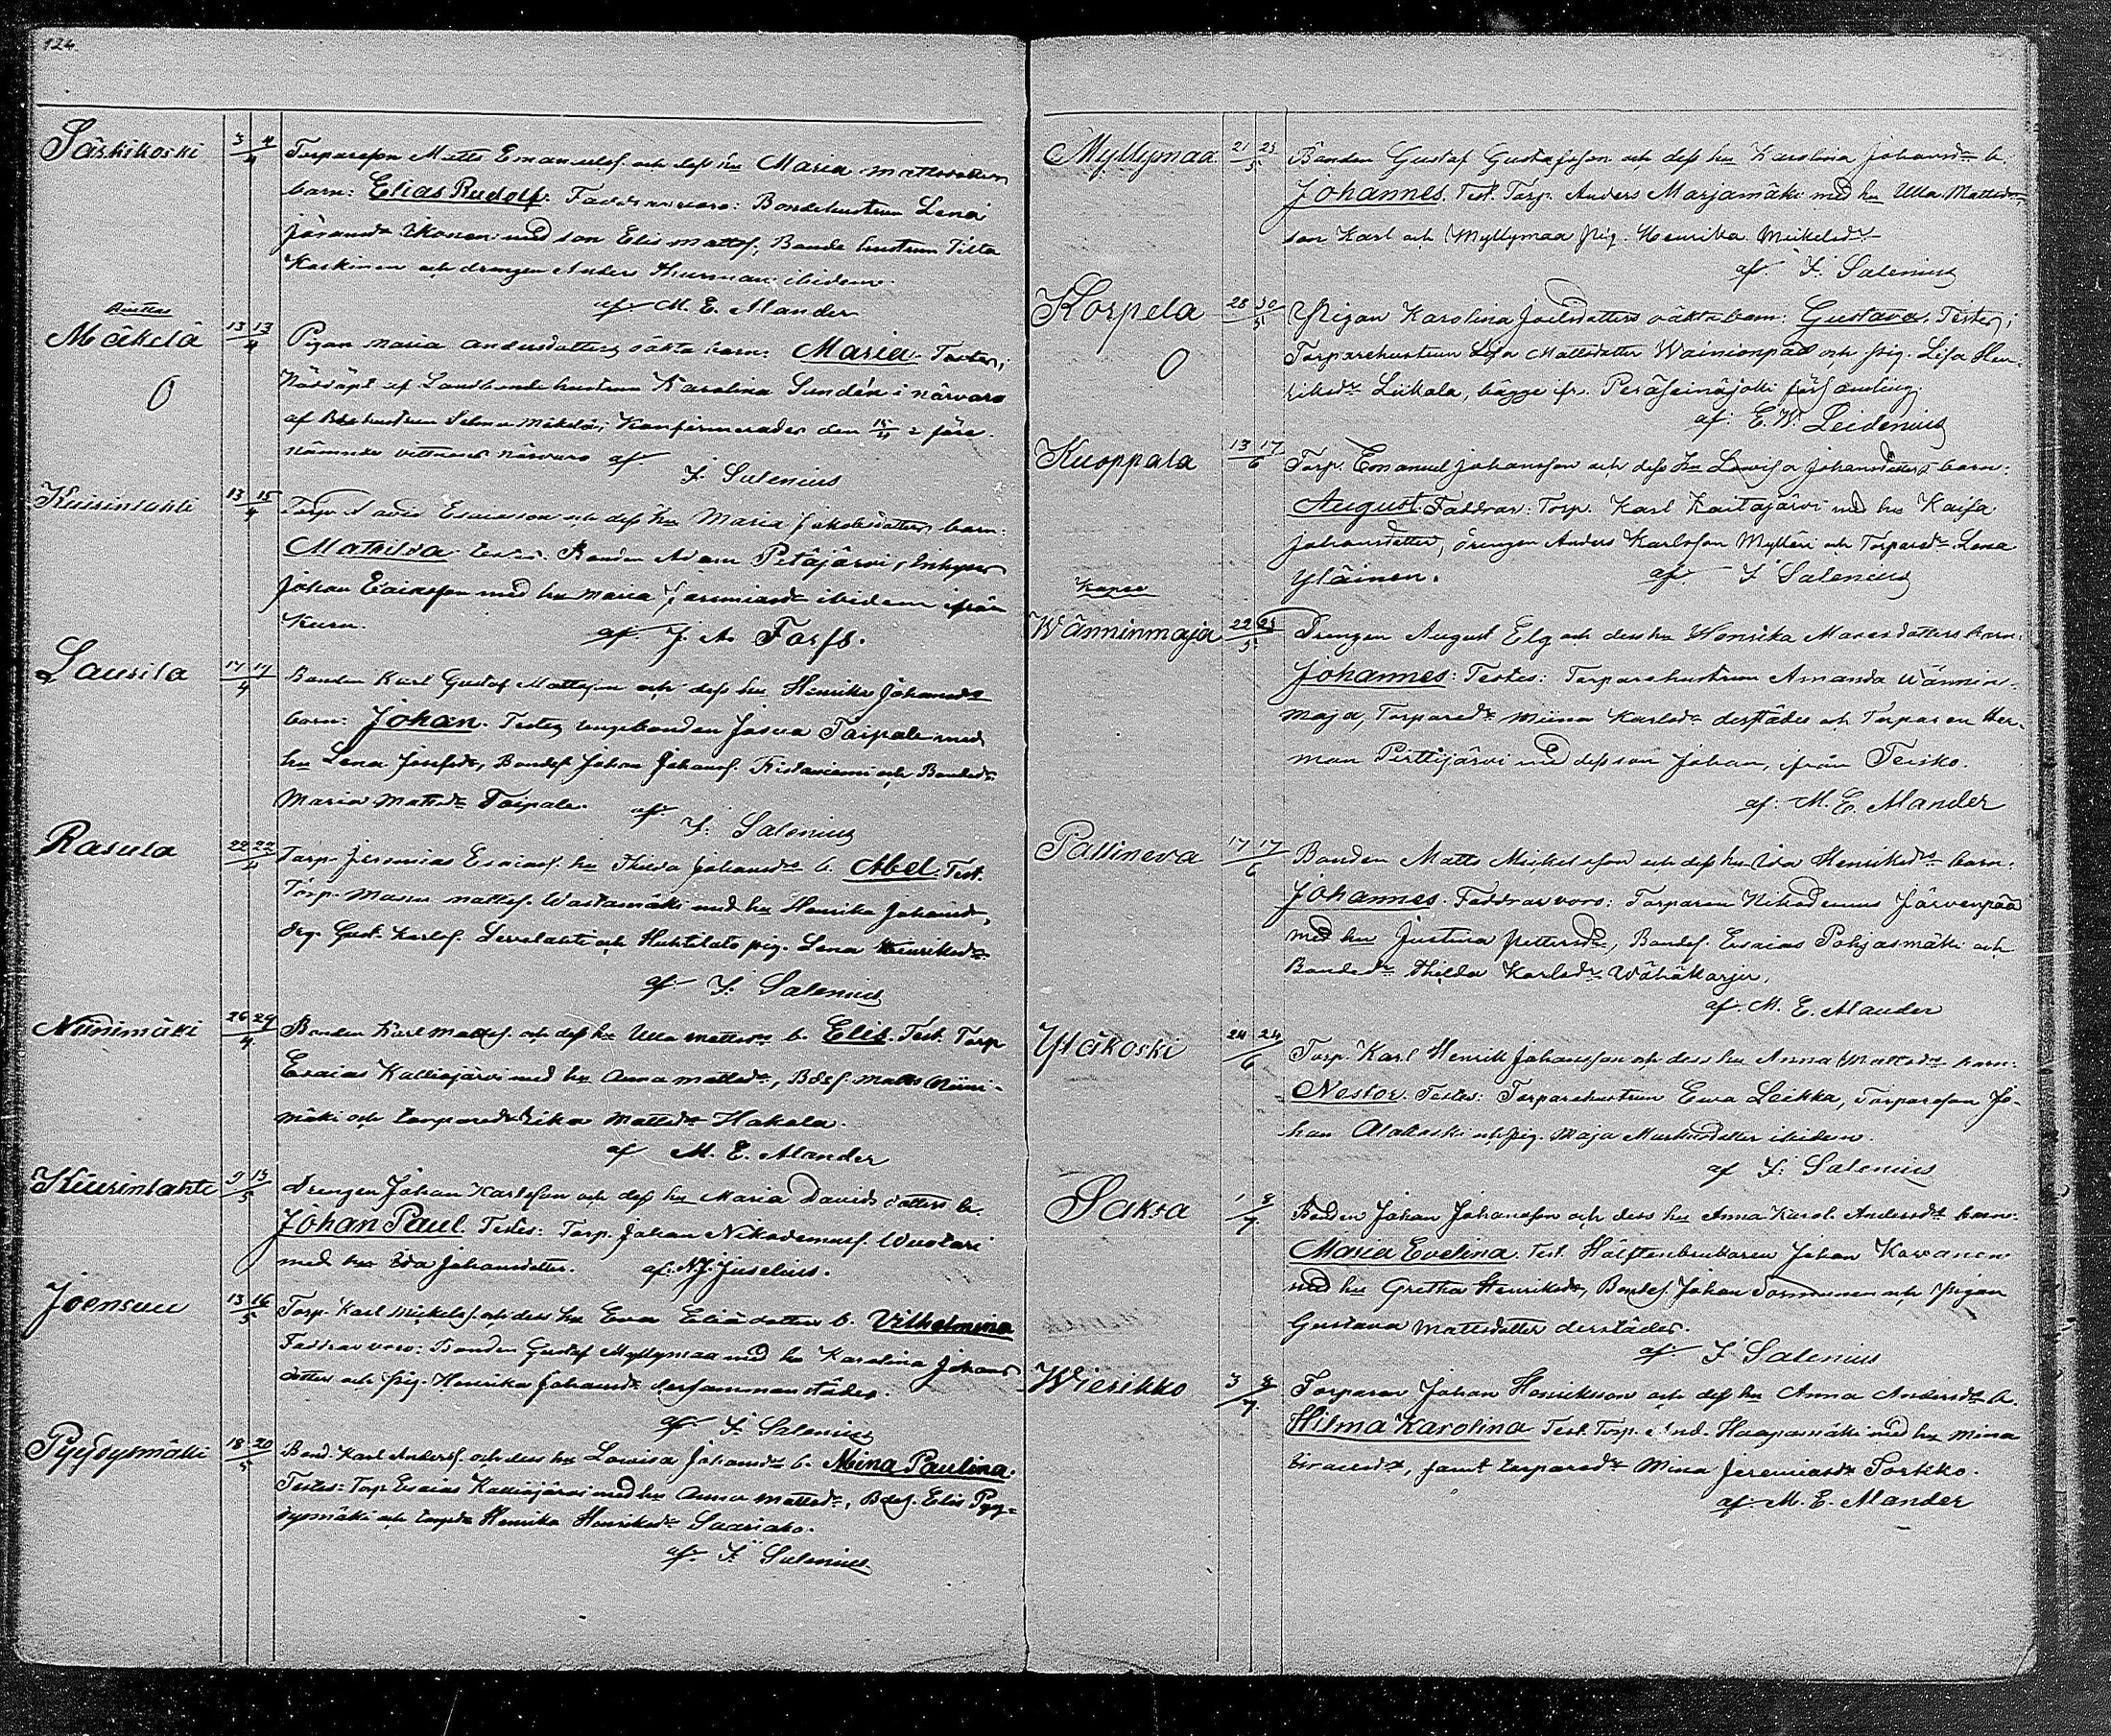 124
Särkikoski 3 4/4 Torpareson Matts Emanuelss. och dess hu Maria Mattsdotters
barn: Elias Rudolf. Faddrar voro: Bondehustrun Lena
med son Elis Mattss., Bonde hustrun Tilta
Koskinen och drengen Anders Thurman ibidem.
af M. E. Alander
Mäkelä 13 13/4 Pigan Maria Andersdotters oäkta barn: Maria. Testes;
Nöddöpt af Landbonde hustrun Karolina Sundén i närvaro
af hustrun Selma Mäkelä; Konfirmerades den 15/4 i före-
nämnde vittnens närvaro af
F. Salenius
Kuirinlahti 13 15/4 Torp. David Esaiasson och dess hu Maria Jakobsdotters barn:
Mathilda. Testes: Bonden Adam Petäjärvi, Inhyses
Johan Esaiasson med hu Maria Jeremiasdr ibidem ifrån
Kuru.
af J. A. Forss.
Laurila 17 17/4 Bonden Karl Gustaf Mattsson och dess hu Henrika Johansdr
barn: Johan. Testes ungebonden Josua Taipale med
hu Lena Josefsdr, Bondes. Johan Johanss. och Bondedr
Maria Mattsdr Taipale.
af F. Salenius
Rasula 22 22/4 Torp. Jeremias Esaiass. hu Thilda Johansdr b. Abel. Test.
Torp. Mattss. Wastamäki med hu Henrika Johansdr,
drg. Gust. Karlss. Levelahti och pig. Lena Henriksdr
af F. Salenius
Niinimäki 26 29/4 Bonden Karl Mattss. och dess hu Ulla Mattsdr b. Elis. Test. Torp
Esaias Kalliojärvi med hu Anna Mattsdr, Bdes. Matts Niini-
mäki och torparedr Erika Mattsdr Hakala.
af M. E. Alander
Kuirinlahti 9 15/5 Drengen Johan Karlsson och dess hu Maria Davidsdotters b.
Johan Paul. Testes: Torp. Johan Nikodemuss. Wuolari
med hu Ida Johansdotter. af N. J. Juselius.
Joensuu 13 16/5 Torp. Karl Mickelss. och dess hu Eva Eliädotters b. Vilhelmina
Faddrar voro: Bonden Gustaf Myllymaa med hu Karolina Johans
dotter och pig. Henrika Johansdr dersammastädes.
af F. Salenius
Pyydysmäki 18 20/5 Bond. Karl Anderss. och dess hu Lovisa Johansdr b. Mina Paulina.
Testes: Torp. Esaias Kalliojärvi med hu Anna Mattsdr, Bdes. Elis Pyy-
dysmäki och torpdr Henrika Henriksdr Saariaho.
af F. Salenius
Myllymaa 21 23/5 Bonden Gustaf Gustafsson och dess hu Karolina Johansdr b.
Johannes. Test. Torp. Anders Marjamäki med hu Ulla Mattsdr
son Karl och Myllymaa pig. Henrika Mickelsdr
af F. Salenius
Korpela 28 30/5 Pigan Karolina Joelsdotters oäkta barn: Gustava. Testes;
Torparehustrun Lisa Mattsdotter Wainionpää och pig. Lisa Hen-
riksdr Liikala, bägge fr. Peräseinäjoki församling.
af: E. W. Leidenius
Kuoppala 13 17/6 Torp. Emanuel Johansson och dess hu Lovisa Johansdotters barn:
August. Faddrar: Torp. Karl Kaitajärvi med hu Kaisa
Johansdotter, drengen Anders Karlsson Mylläri och Torparedr Lena
Yläinen. af F. Salenius
Wänninmaja 22 23/5 Drengen August Elg och dess hu Henrika Mosesdotters barn:
Johannes: Testes: Torparehustrun Amanda Wännin-
maja, Torparedr Miina Karlsdr derstädes och Torparen Her-
man Perttijärvi med dess son Johan, ifrån Teisko.
af: M. E. Alander
Pallineva 17 17/6 Bonden Matts Mickelsson och dess hu Ida Henriksdrs barn:
Johannes. Faddrar voro: Torparen Nikodemus Järvenpää
med hu Justina Pettersdr, Bondes. Esaias Pohjasmäki och
Bondedr Thilda Karlsdr Wähäkarju.
af M. E. Alander
Yläkoski 24 24/6 Torp. Karl Henrik Johansson och dess hu Anna Mattsdrs barn:
Nestor. Testes: Torparehustrun Ewa Leikka, Torpareson Jo-
han Alakoski och pig. Maja Markusdotter ibidem.
af F. Salenius
Saksa 1 8/7 Bonden Johan Johansson och dess hu Anna Karol. Andersdr barn:
Maria Evelina. Test. Hälftenbrukaren Johan Kovanen
med hu Gretha Henriksdr, Bondes. Johan Tormunen och Pigan
Gustava Mattsdotter derstädes.
af F. Salenius
Wierikko 3 8/7 Torparen Johan Henriksson och dess hu Anna Andersdr b.
Hilma Karolina Test. Torp. And. Haapamäki med hu Mina
samt torparedr Mina Jeremiasdr Porkko.
af. M. E. Alander